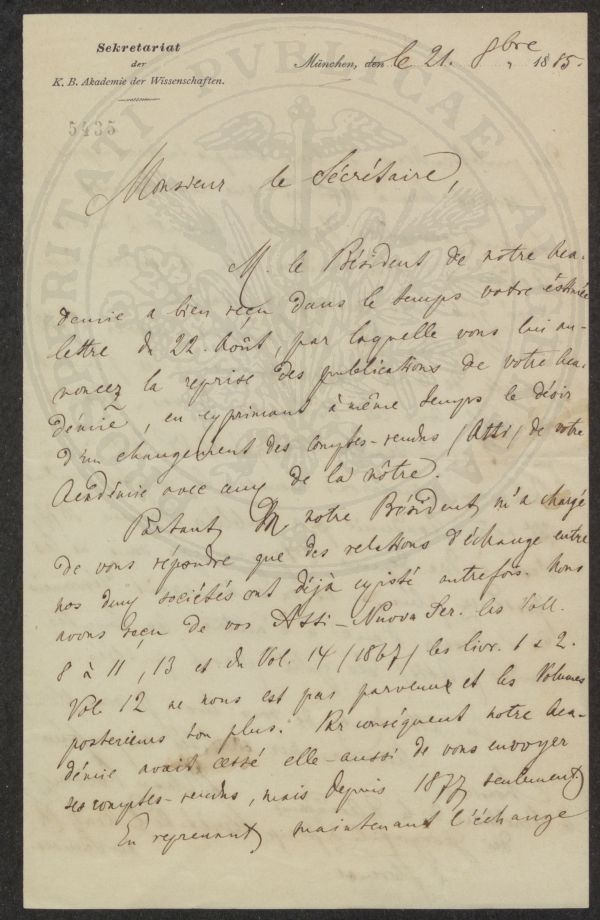 Sekretariat
der
K. B. Akademie der Wissenschaften.
München, den le 21. 8bre 1885.
5435
PUBLICAE
Monsieur le Sécrétaire,
M. le Président de notre Aca-
demie a bien reçu dans le temps votre éstimée
lettre du 22. Août, par laquelle vous lui an-
noncez la reprise des publications de votre Aca-
démie, en exprimant à même temps le désir
d'un changement des comptes-rendus (Atti) de votre
Académie avec ceux de la nôtre.
Partant notre Président m'a chargé
de vous répondre que des relations d'échange entre
nos deux sociétés ont déjà existé autrefois. Nous
avons reçu de vos Atti - Nuova Ser. les Voll.
8 à 11, 13 et du Vol. 14 (1867) les livr. 1 & 2.
Vol. 12 ne nous est pas parvenu et les Volumes
posterieurs non plus. Par conséquent notre Aca-
démie avait cessé elle-aussi de vous envoyer
ses comptes-rendus, mais depuis 1877 seulement.
En reprenant maintenant l'échange